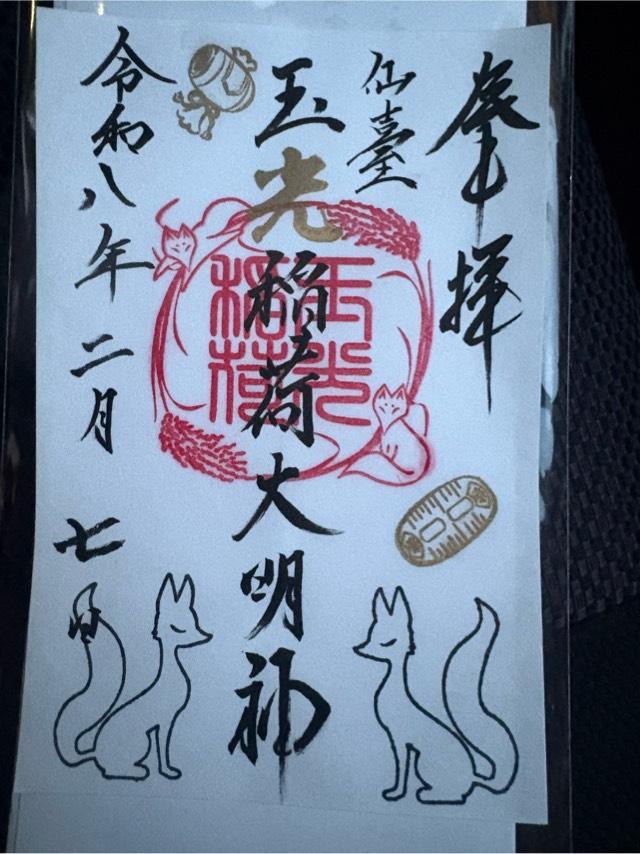 奉拝
仙臺
玉光稲荷大明神
玉光
稲荷
令和八年二月七日